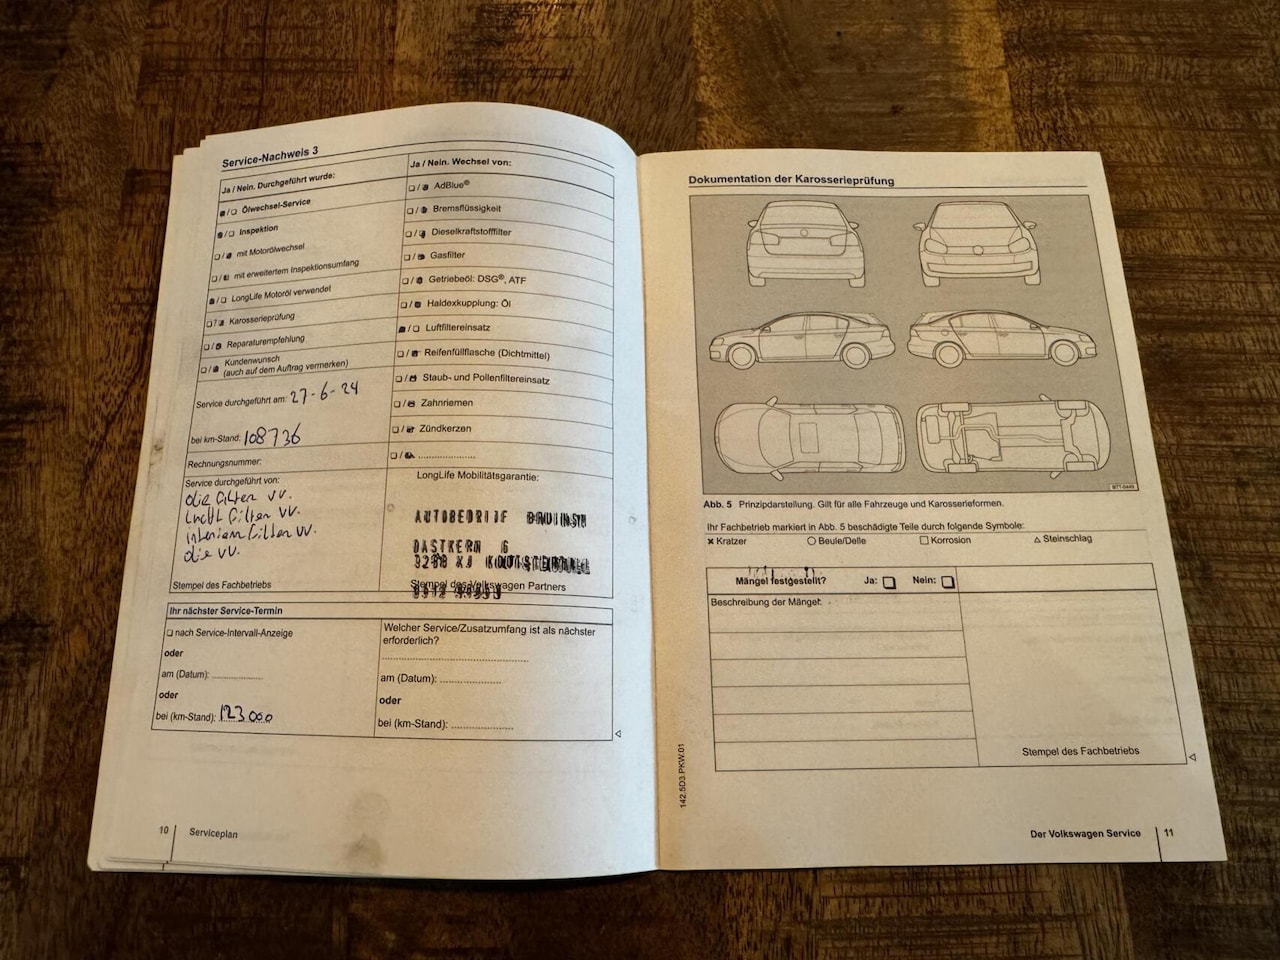 Service-Nachweis 3
Ja / Nein. Durchgeführt wurde:
Ölwechsel-Service
Inspektion
mit Motorölwechsel
mit erweitertem Inspektionsumfang
LongLife Motoröl verwendet
Karosserieprüfung
Reparaturempfehlung
Kundenwunsch
(auch auf dem Auftrag vermerken)
Service durchgeführt am: 27-6-24
bei km-Stand: 108736
Rechnungsnummer:
Service durchgeführt von:
olie filter vv.
lucht filter vv.
interieur filter vv.
olie vv.
Stempel des Fachbetriebs
Ja / Nein. Wechsel von:
AdBlue®
Bremsflüssigkeit
Dieselkraftstofffilter
Gasfilter
Getriebeöl: DSG®, ATF
Haldexkupplung: Öl
Luftfiltereinsatz
Reifenfüllflasche (Dichtmittel)
Staub- und Pollenfiltereinsatz
Zahnriemen
Zündkerzen
LongLife Mobilitätsgarantie:
AUTOBEDRIJF BRUINSMA
OASTKERN 6
KOOTSTERTILLE
Stempel des Volkswagen Partners
Ihr nächster Service-Termin
nach Service-Intervall-Anzeige
oder
am (Datum):
oder
bei (km-Stand): 123000
Welcher Service/Zusatzumfang ist als nächster
erforderlich?
am (Datum):
oder
bei (km-Stand):
10 Serviceplan
Dokumentation der Karosserieprüfung
B7T-0449
Abb. 5 Prinzipdarstellung. Gilt für alle Fahrzeuge und Karosserieformen.
Ihr Fachbetrieb markiert in Abb. 5 beschädigte Teile durch folgende Symbole:
Kratzer Beule/Delle Korrosion Steinschlag
Mängel festgestellt? Ja: Nein:
Beschreibung der Mängel:
Stempel des Fachbetriebs
142.5D3.PKW.01
Der Volkswagen Service 11